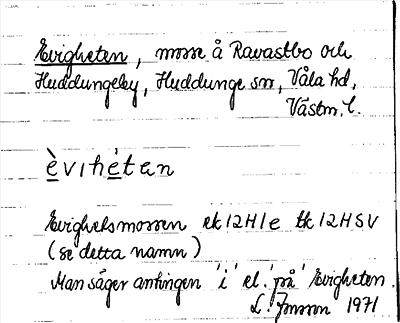 Evigheten, mosse å Ravastbo och
Huddungeby, Huddunge sn, Våla hd,
Västm. l.
èvιhétan
Evighetsmossen ek 12H1e tk 12HSV
(se detta namn)
Man säger antingen 'i' el. 'på' Evigheten.
L. Jonson 1971